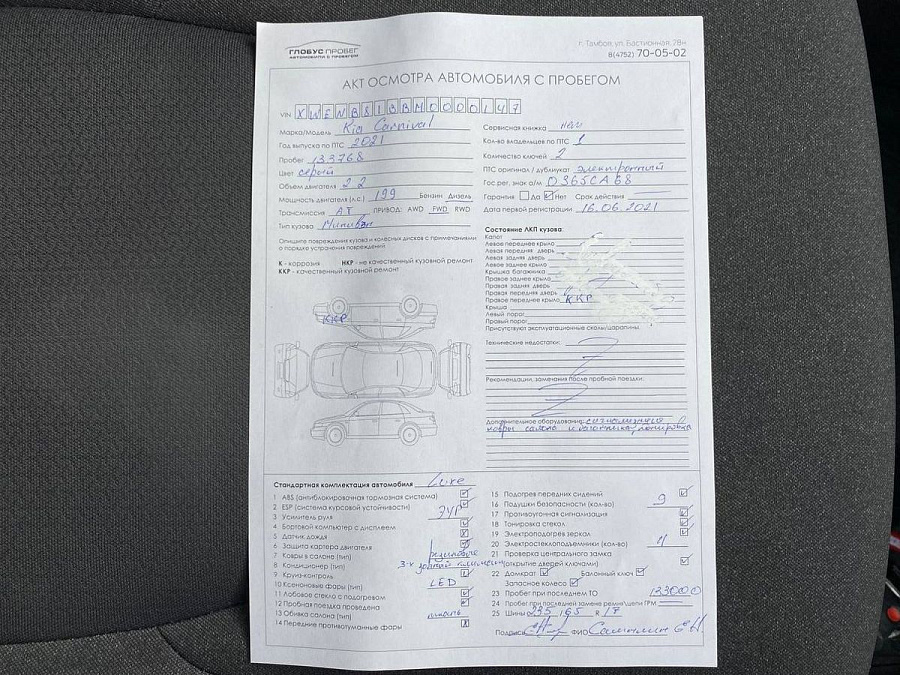 ГЛОБУС ПРОБЕГ
АВТОМОБИЛИ С ПРОБЕГОМ
г. Тамбов, ул. Бастионная, 28н
8(4752) 70-05-02
АКТ ОСМОТРА АВТОМОБИЛЯ С ПРОБЕГОМ
VIN XWENB81BBM0000147
Марка/Модель Kia Carnival
Год выпуска по ПТС 2021
Пробег 133768
Цвет серый
Объем двигателя 2.2
Мощность двигателя (л.с.) 199 Бензин Дизель
Трансмиссия АТ ПРИВОД: AWD FWD RWD
Тип кузова Минивэн
Сервисная книжка нет
Кол-во владельцев по ПТС 1
Количество ключей 2
ПТС оригинал / дубликат электронный
Гос. рег. знак а/м О365СА68
Гарантия Да Нет Срок действия
Дата первой регистрации 16.06.2021
Опишите повреждения кузова и колесных дисков с примечаниями
о порядке устранения повреждений
К - коррозия НКР - не качественный кузовной ремонт
ККР - качественный кузовной ремонт
ККР
Состояние ЛКП кузова:
Капот
Левое переднее крыло
Левая передняя дверь
Левая задняя дверь
Левое заднее крыло
Крышка багажника
Правое заднее крыло
Правая задняя дверь
Правая передняя дверь
Правое переднее крыло ККР
Крыша
Левый порог
Правый порог
Присутствуют эксплуатационные сколы/царапины.
Технические недостатки:
Рекомендации, замечания после пробной поездки:
Дополнительное оборудование: сигнализация
ковры салона и багажника, тонировка
Стандартная комплектация автомобиля Luxe
1 ABS (антиблокировочная тормозная система)
2 ESP (система курсовой устойчивости)
3 Усилитель руля ЭУР
4 Бортовой компьютер с дисплеем
5 Датчик дождя
6 Защита картера двигателя
7 Ковры в салоне (тип) резиновые
8 Кондиционер (тип) 3-х зонный климат
9 Круиз-контроль
10 Ксеноновые фары (тип) LED
11 Лобовое стекло с подогревом
12 Пробная поездка проведена
13 Обивка салона (тип) ткань
14 Передние противотуманные фары
15 Подогрев передних сидений
16 Подушки безопасности (кол-во) 9
17 Противоугонная сигнализация
18 Тонировка стекол
19 Электроподогрев зеркал
20 Электростеклоподъемники (кол-во) 4
21 Проверка центрального замка
(открытие дверей ключами)
22 Домкрат Балонный ключ
Запасное колесо
23 Пробег при последнем ТО 133000
24 Пробег при последней замене ремня/цепи ГРМ
25 Шины 235/65 R 17
Подпись ФИО